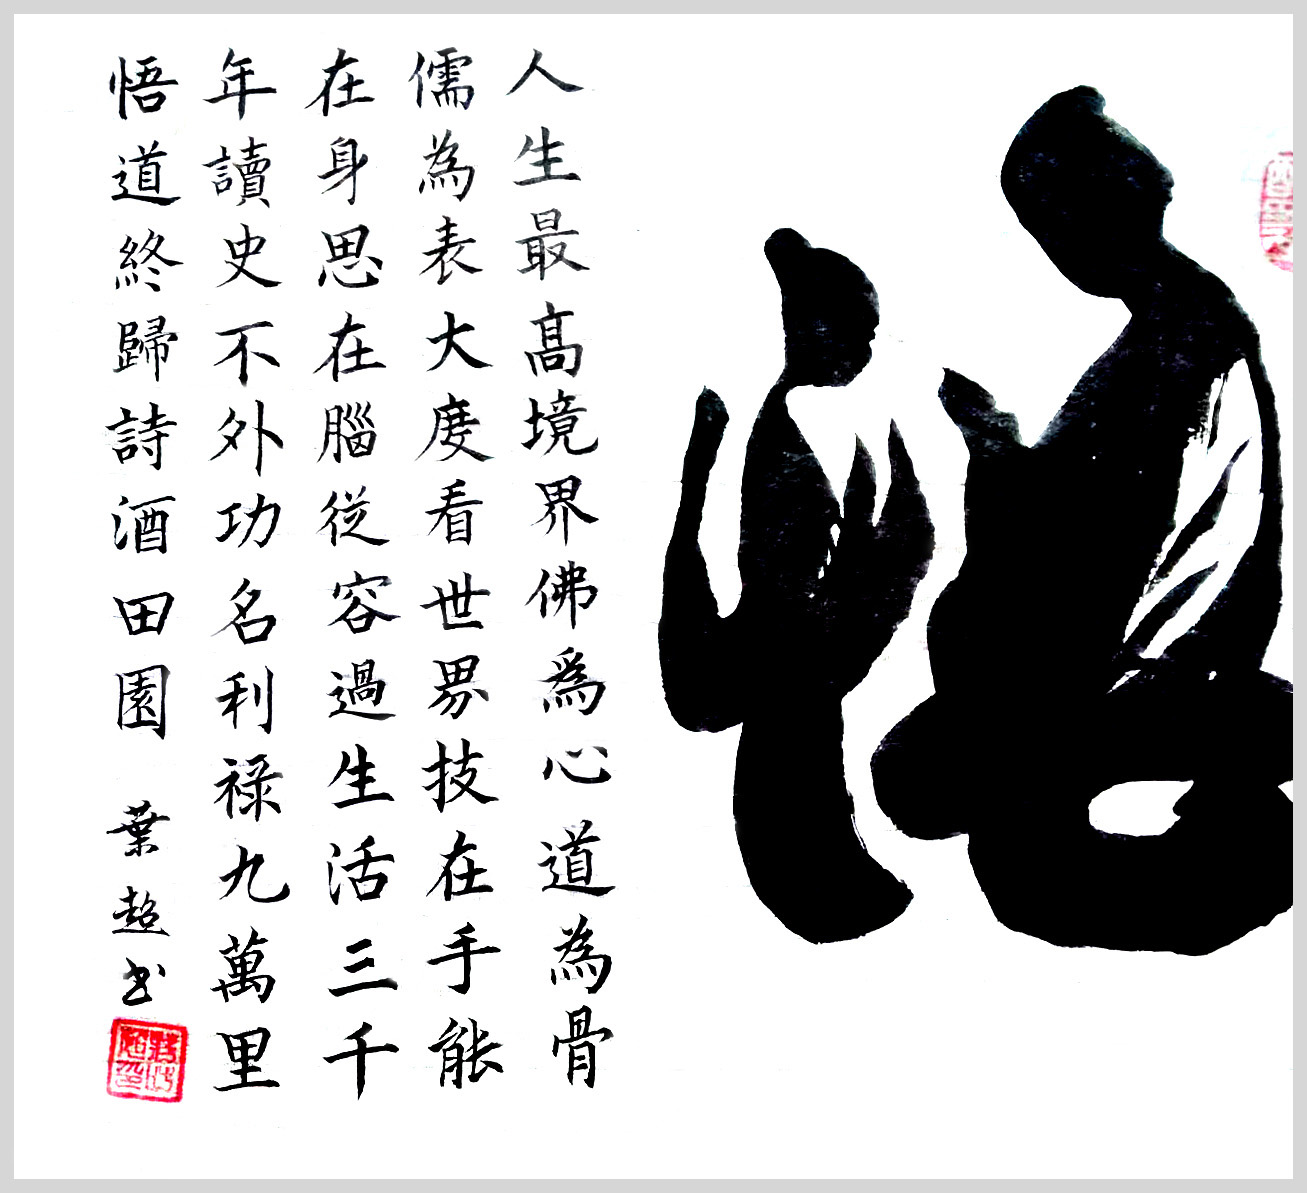 悟
人生最高境界佛爲心道為骨
儒為表大度看世界技在手能
在身思在腦從容過生活三千
年讀史不外功名利祿九萬里
悟道終歸詩酒田園 葉超书